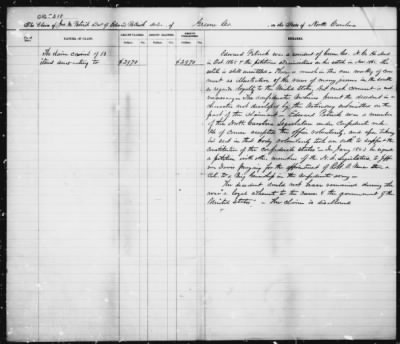 The Claim of Jno. M. Patrick Adm'r of Edward Patrick dec'd. of Greene Co. in the State of North Carolina
NATURE OF CLAIM.
AMOUNT CLAIMED.
AMOUNT ALLOWED.
AMOUNT DISALLOWED.
REMARKS.
The claim consists of 13
items amounting to
$2970
$2970
Edward Patrick was a resident of Greene Co. N.C. He died
in Oct 1865 & the petitioner administered on the estate in Nov 1865. The
estate is still unsettled. There is much in this case worthy of com-
ment as illustrative of the views of many persons in the south
as regards loyalty to the United States, but such comment is un-
necessary. The Confederate Archives present the decedent in a
character not developed by the testimony submitted on the
part of the Claimant. Edward Patrick was a member
of the North Carolina Legislature under Confederate rule.
He of course accepted the office voluntarily, and upon taking
his seat in that body voluntarily took an oath to support the
constitution of the confederate states. In Jany 1863 he signed
a petition with other members of the N.C. Legislature to Jeff-
erson Davis praying for the appointment of
Col. to a Brig Generalship in the confederate army.
The decedent could not have remained during the
war a loyal adherent to the cause & the government of the
United States. The claim is disallowed